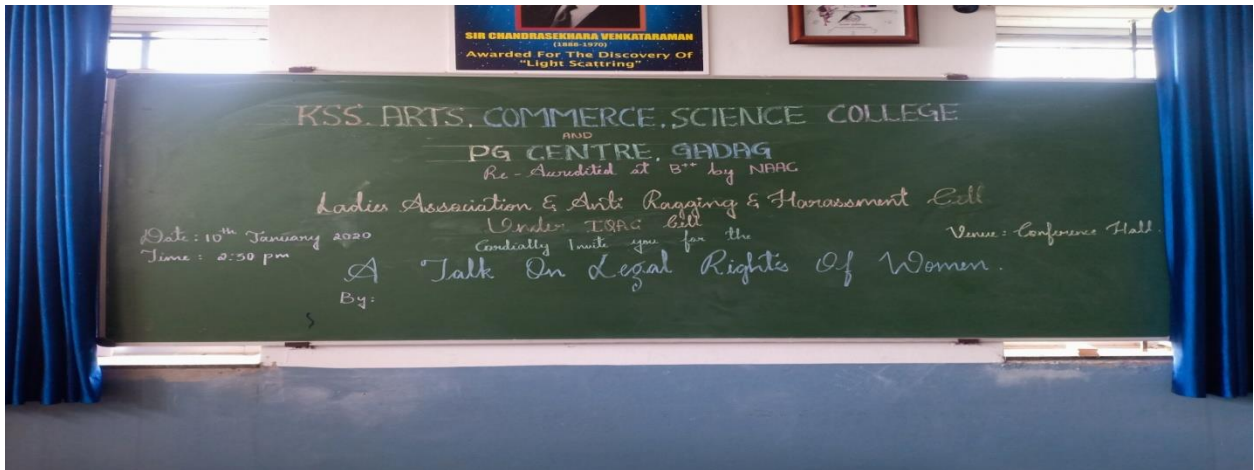 SIR CHANDRASEKHARA VENKATARAMAN
(1888-1970)
Awarded For The Discovery Of
"Light Scattring"
KSS. ARTS. COMMERCE. SCIENCE COLLEGE
AND
PG CENTRE, GADAG
Re-Accredited at B++ by NAAC
Ladies Association & Anti Ragging & Harassment Cell
Under IQAC Cell
Date: 10th January 2020
Cordially Invite you for the
Venue: Conference Hall.
Time: 2:30 pm
A Talk On Legal Rights Of Women.
By: